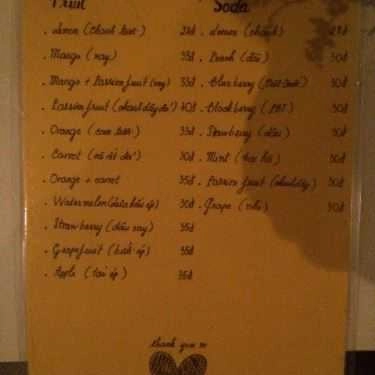 Fruit
. Lemon (chanh tươi) 25đ
. Mango (xay) 35đ
. Mango + Passion fruit (xay) 35đ
. Passion fruit (chanh dây đá) 30đ
. Orange (cam tươi) 35đ
. Carrot 30đ
. Orange + carrot 35đ
. Watermelon (dưa hấu ép) 30đ
. Strawberry (dâu xay) 35đ
. Grapefruit (bưởi ép) 35đ
. Apple (táo ép) 35đ
Soda
. Lemon (chanh)
. Peach (đào) 30đ
. Blueberry 30đ
. Blackberry 30đ
. Strawberry (dâu) 30đ
. Mint (bạc hà) 30đ
. Passion fruit (chanh dây) 30đ
. Grape (nho) 30đ
thank you